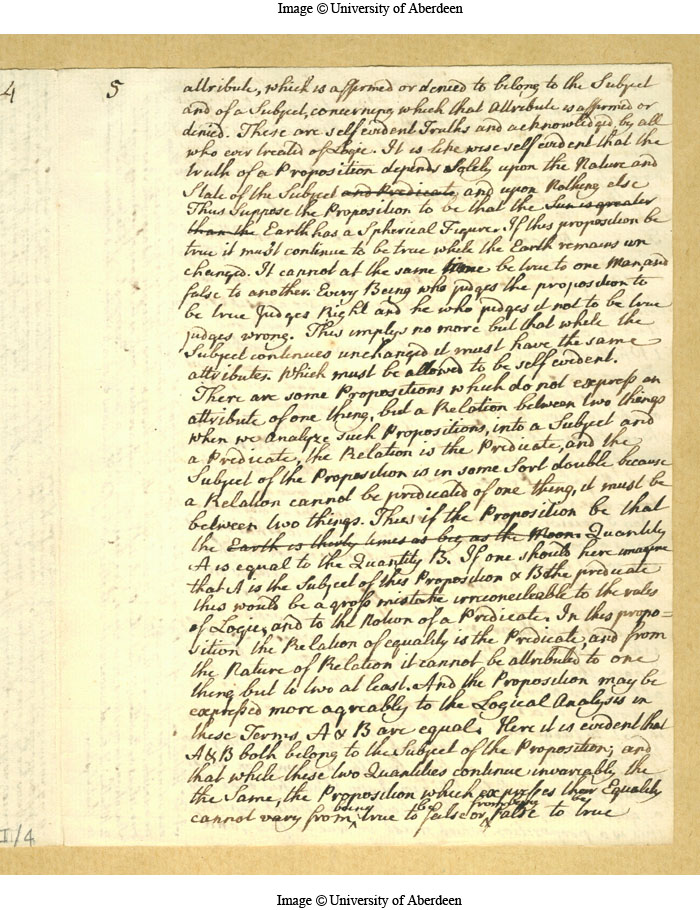 Image © University of Aberdeen
4
5
attribute, which is affirmed or denied to belong to the Subject
and of a Subject, concerning which that Attribute is affirmed or
denied. These are self evident Truths and acknowledged by all
who ever treated of Logic. It is like wise self evident that the
truth of a Proposition depends Solely upon the Nature and
State of the Subject and Predicate and upon Nothing else
Thus Suppose the Proposition to be that the Sun is greater
than the Earth has a Spherical Figure. If this proposition be
true it must continue to be true while the Earth remains un
changed. It cannot at the same time be true to one Man, and
false to another. Every Being who judges the proposition to
be true Judges Right and he who judges it not to be true
judges wrong. This implys no more but that while the
Subject continues unchanged it must have the same
attributes. Which must be allowed to be self evident.
There are some Propositions which do not express an
attribute of one thing, but a Relation between two things
When we Analyze such Propositions, into a Subject and
a Predicate, the Relation is the Predicate, and the
Subject of the Proposition is in some Sort double because
a Relation cannot be predicated of one thing, it must be
between two things. Thus if the Proposition be that
the Earth is thirty times as big as the Moon. Quantity
A is equal to the Quantity B. If one should here imagine
that A is the Subject of this Proposition & B the predicate
this would be a gross mistake irreconcileable to the rules
of Logic, and to the Notion of a Predicate. In this propo=
sition the Relation of equality is the Predicate, and from
the Nature of Relation it cannot be attributed to one
thing but to two at least. And the Proposition may be
expressed more agreably to the Logical Analysis in
these Terms, A & B are equal. Here it is evident that
A & B both belong to the Subject of the Proposition; and
that while these two Quantities continue invariably the
the Same, the Proposition which expresses their Equality
being be from being be
cannot vary from true to false or false to true
I/4
Image © University of Aberdeen